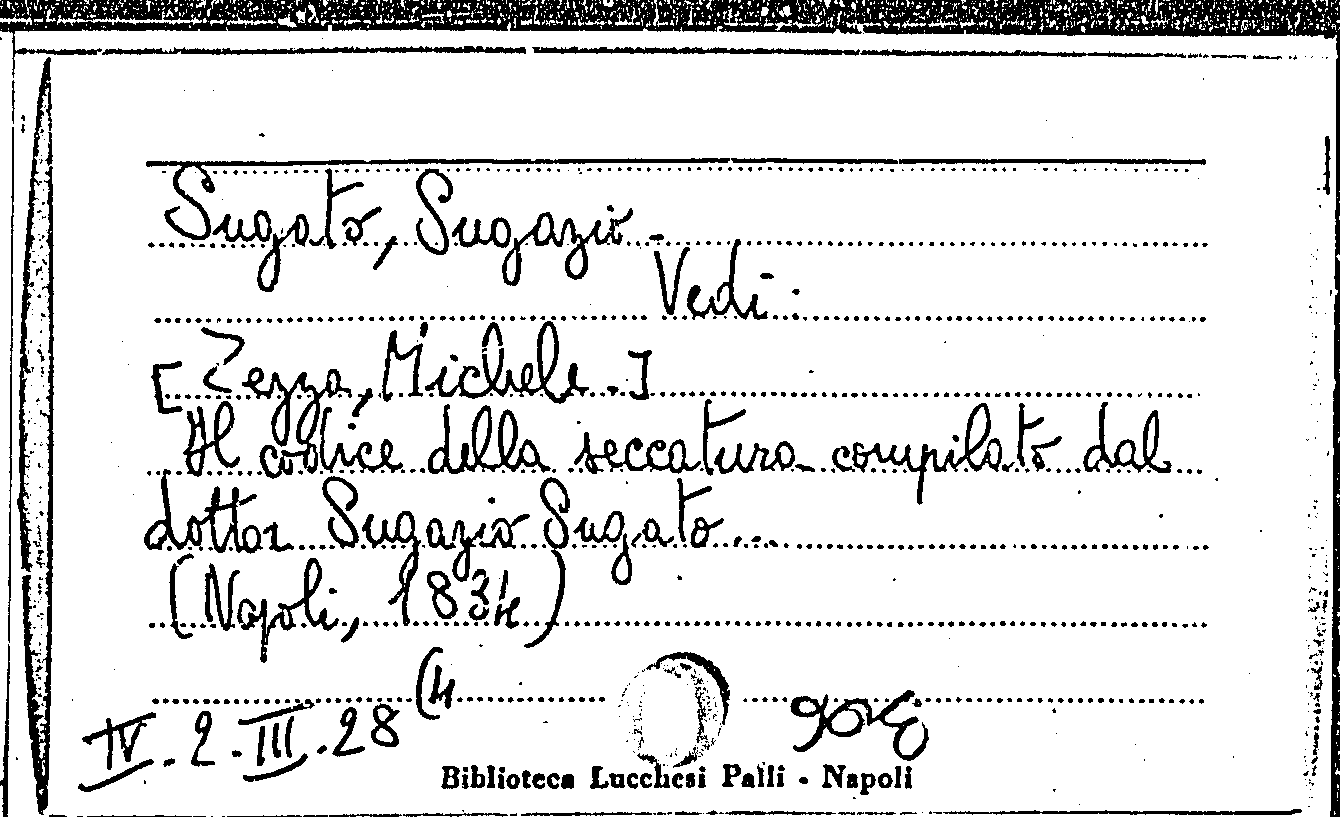 Sugato, Sugazio -
Vedi:
[Zezza, Michele.]
Il codice della seccatura compilato dal
dottor Sugazio Sugato...
(Napoli, 1834)
IV. 2. III. 28 (4
Biblioteca Lucchesi Palli - Napoli